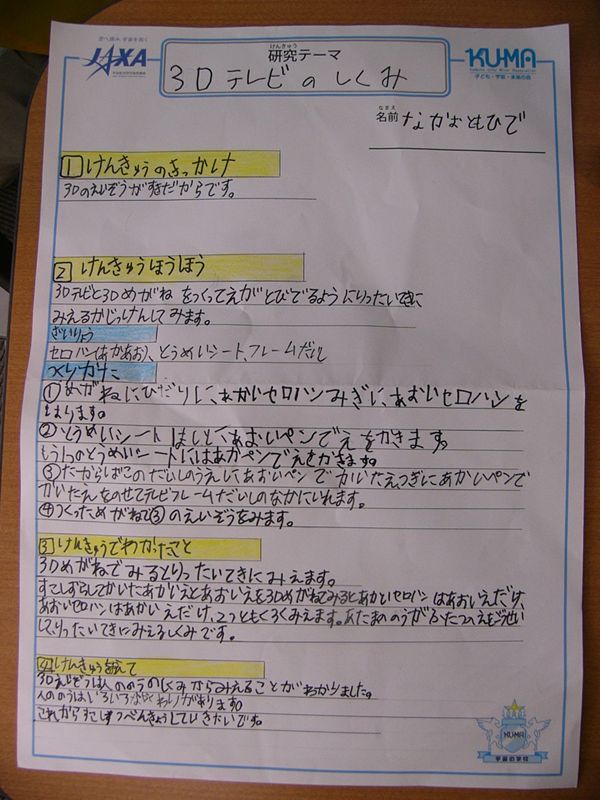 JAXA
けんきゅう
研究テーマ
3Dテレビのしくみ
KU-MA
子ども・宇宙・未来の会
なまえ
名前 ながおともひで
1 けんきゅうのきっかけ
3Dのえいぞうがすきだからです。
2 けんきゅうほうほう
3Dテレビと3Dめがねをつくってえがとびでるようにりったいてきに
みえるかじっけんしてみます。
ざいりょう
セロハン(あかあお)、とうめいシート、フレームだいし
つくりかた
①めがねにひだりに、あかいセロハンみぎに、あおいセロハンを
はります。
②とうめいシート
あおいペンでえをかきます。
もう1つのとうめいシートにはあかペンでえをかきます。
③たからばこのだいしのうえに、あおいペンでかいたえつぎにあかいペンで
かいたえをのせてテレビフレームだいしのなかにいれます。
④つくっためがねで③のえいぞうをみます。
3 けんきゅうでわかったこと
3Dめがねでみるとりったいてきにみえます。
すこしずらしてかいたあかいえとあおいえを3Dめがねでみるとあかいセロハンはあおいえだけ、
あおいセロハンはあかいえだけ、2つともくろくみえます。あたまののうがふたつのえを
して、りったいてきにみえるしくみです。
4 けんきゅうを終えて
3Dえいぞうは人ののうのしくみからみえることがわかりました。
人ののうはいろいろな
がります。
これからすこしずつべんきょうしていきたいです。
KU-MA
宇宙の学校